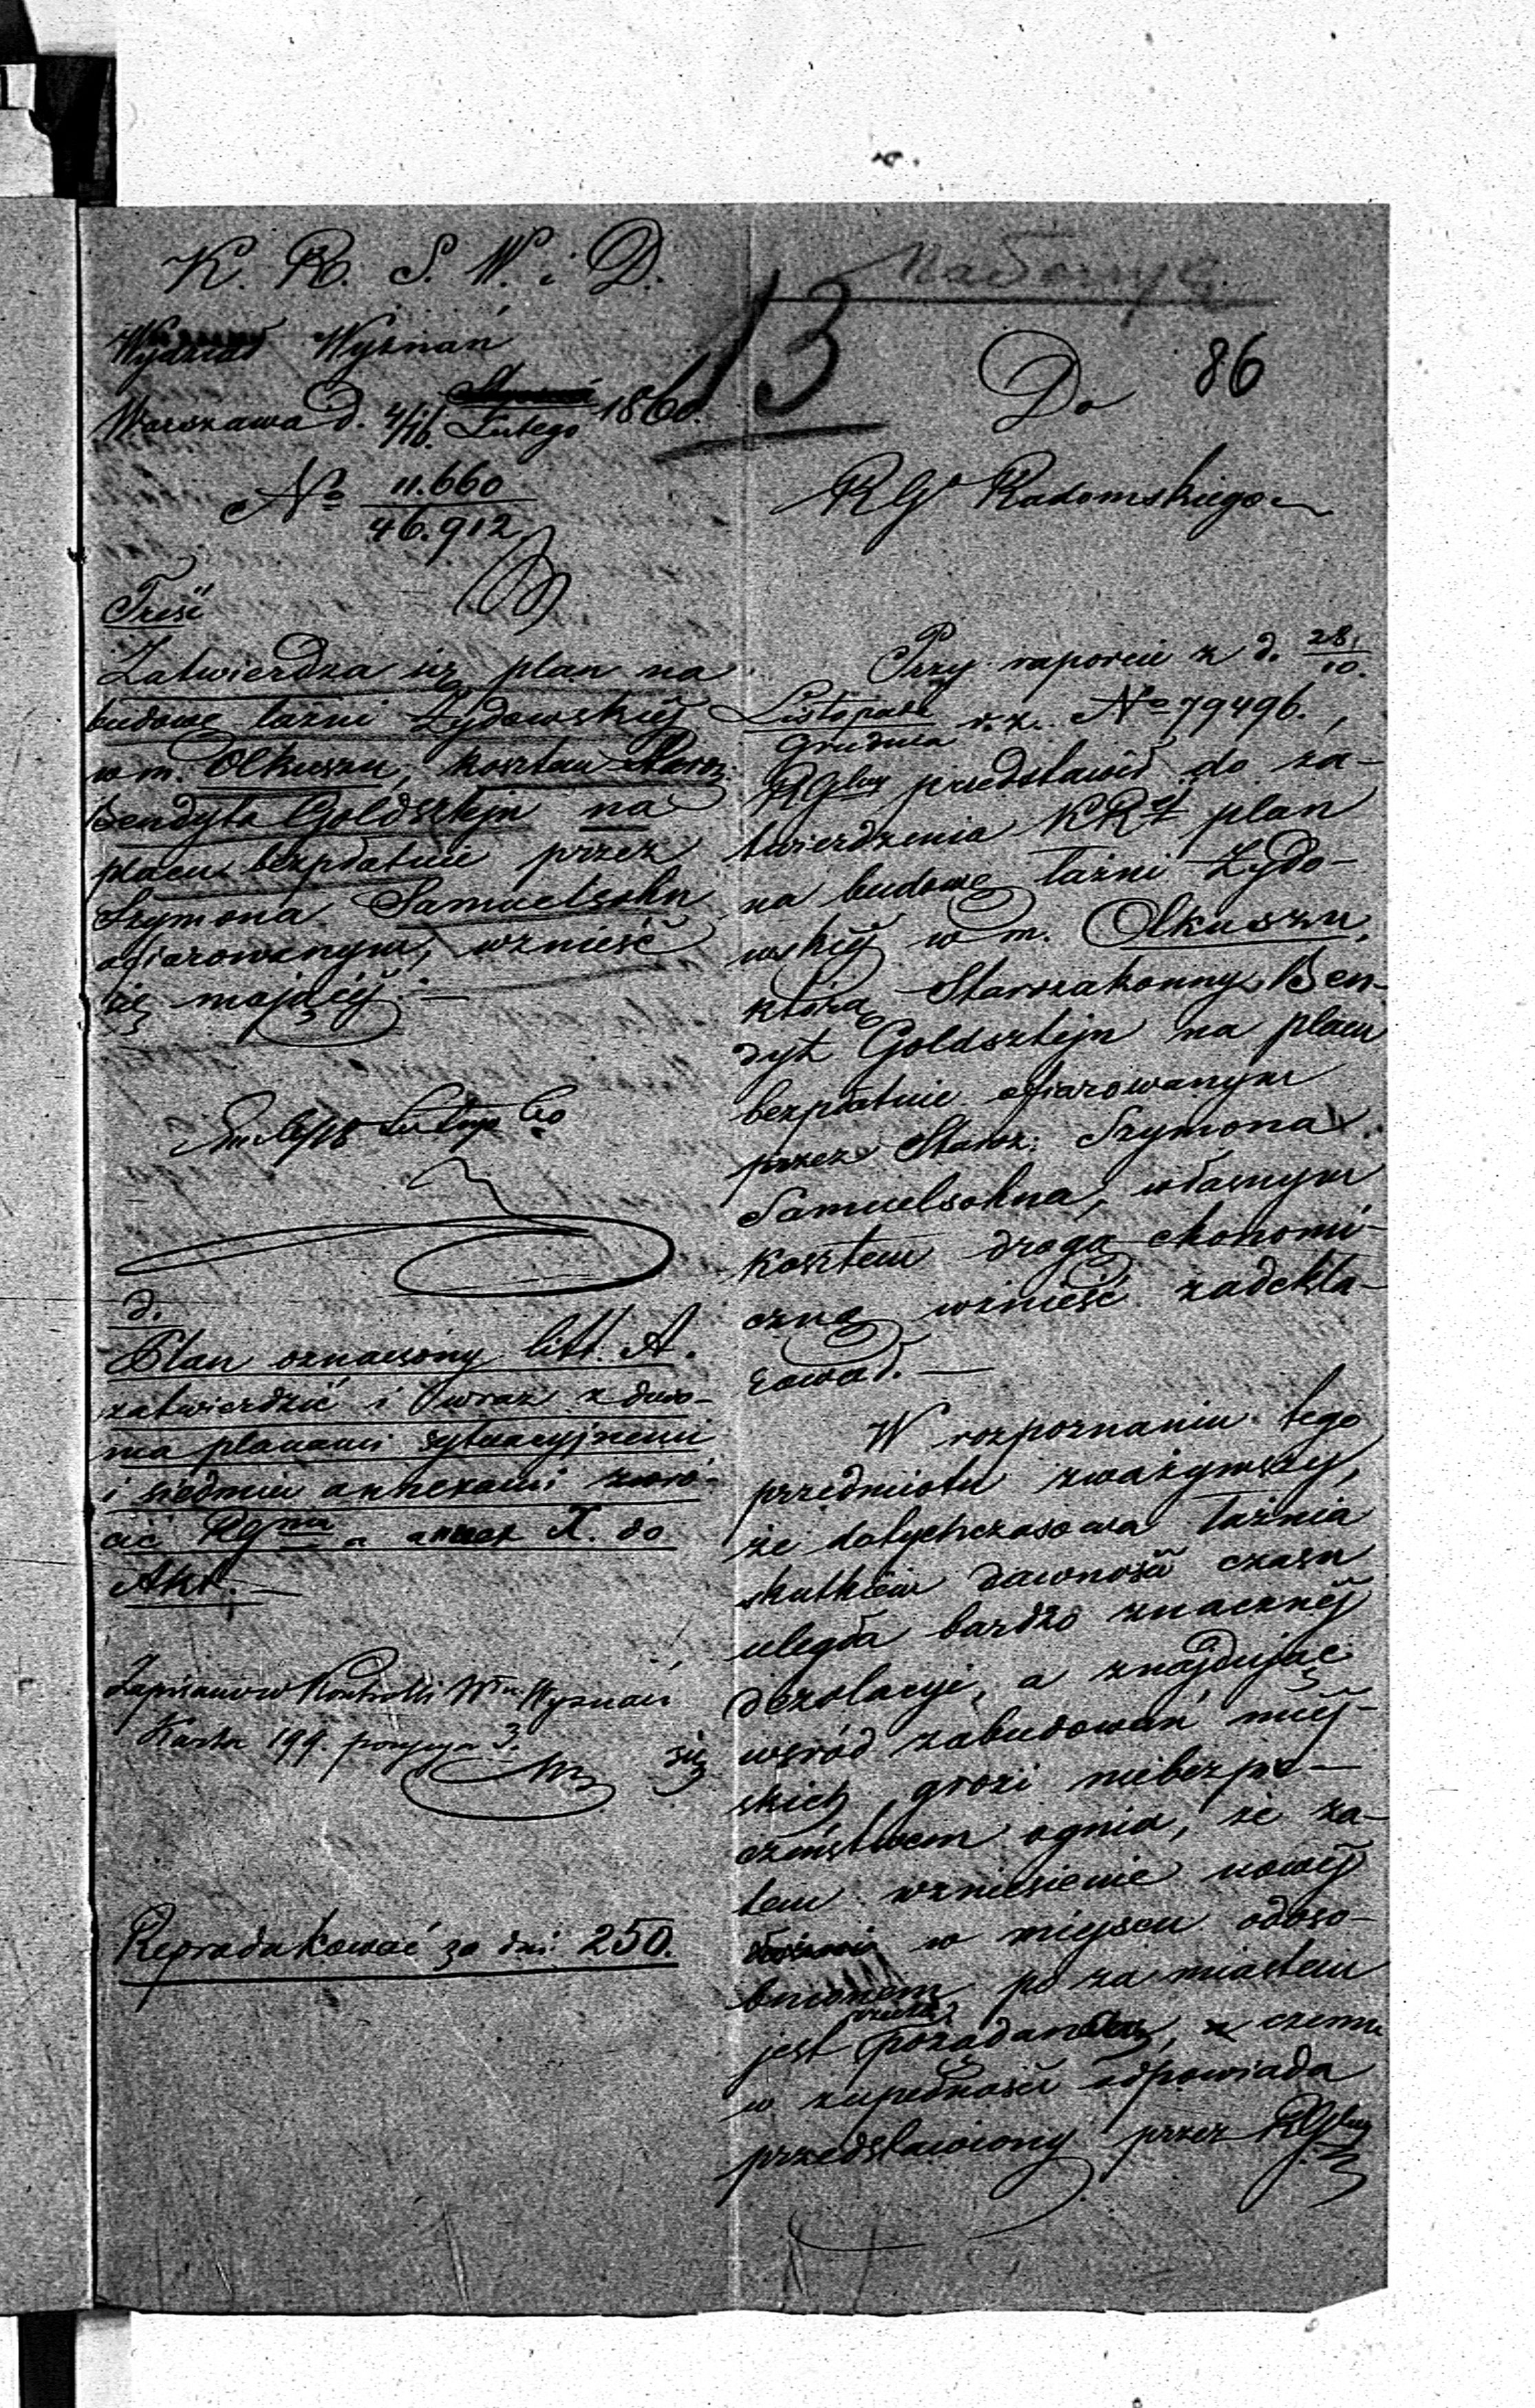 K. R. S. W. i D.
Wydział Wyznań
Warszawa d. 4/16 Lutego 1860.
No 11.660
46.912
Treść
Zatwierdza się plan na
budowę łaźni Żydowskiéj
w m. Olkuszu, kosztem Staroz:
Bendyta Goldsztejn na
placu bezpłatnie przez
Szymona Samuelsohn
ofiarowanym, wznieść
się mającéj. —
d.
Plan oznaczony litt. A.
zatwierdzić i wraz z dwo-
ma planami sytuacyjnemi
i siedmiu annexami zwró-
cić RGmu a annex X. do
Akt. —
Zapisano w Kontrolli Włu Wyznań
Karta 199. pozycya 3.
Reprodukować za dni 250.
13
86
Do
RGo Radomskiego
Przy raporcie z d. 28/10.
Listopada
Grudnia r. z. No 79496.,
RGlny przedstawił do za-
twierdzenia KRéj plan
na budowę łaźni Żydo-
wskiéj w m. Olkuszu,
którą Starozakonny Ben-
dyt Goldsztejn na placu
bezpłatnie ofiarowanym
przez Staroz: Szymona
Samuelsohna, własnym
kosztem drogą ekonomi-
czną wznieść zadekla-
rował. —
W rozpoznaniu tego
przedmiotu zważywszy,
że dotychczasowa łaźnia
skutkiem dawności czasu
uległa bardzo znacznéj
dezolacyi, a znajdując
się wśród zabudowań miej-
skich grozi niebezpie-
czeństwem ognia, że za-
tem wzniesienie nowéj
w miejscu odoso-
bnionem po za miastem
jest pożądane, czemu
w zupełności odpowiada
przedstawiony przez RGlny